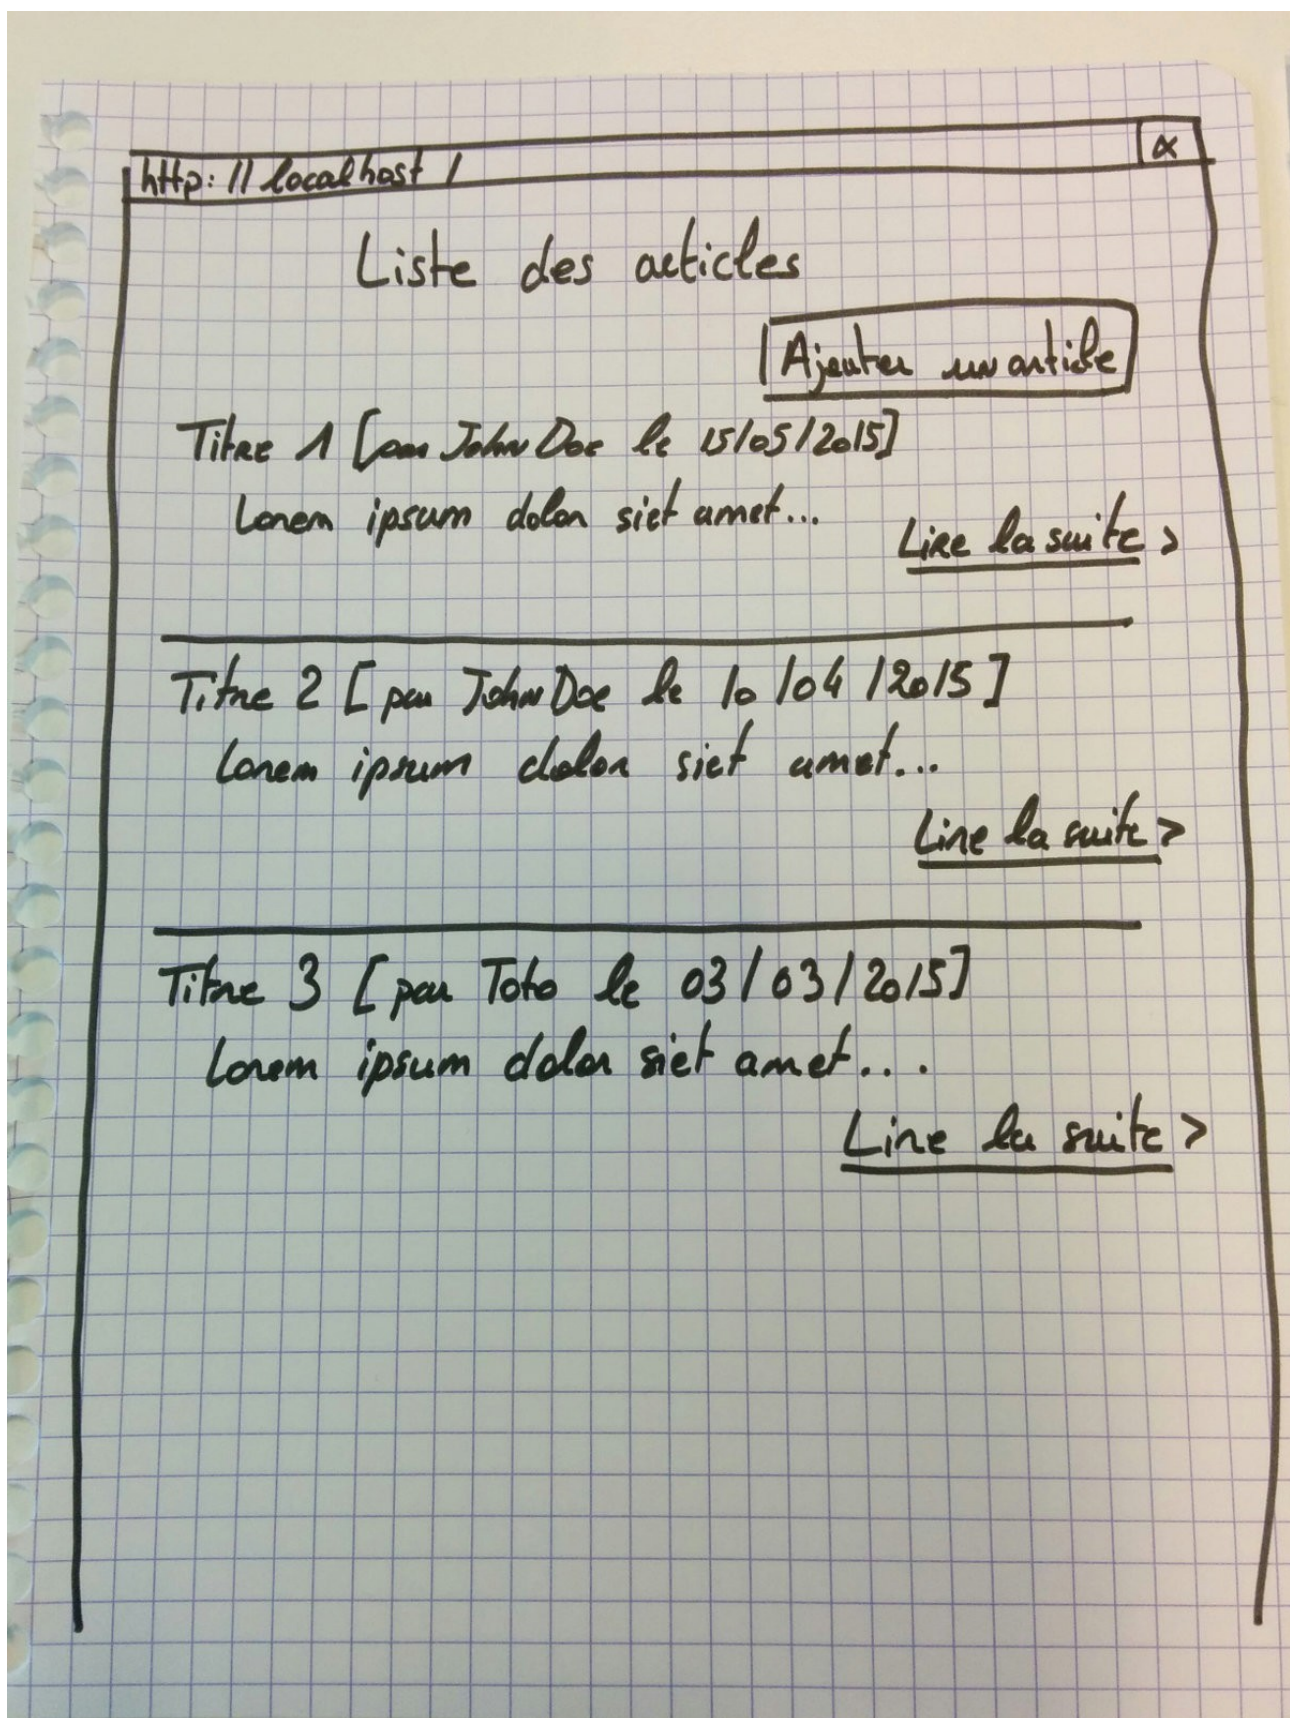 http://localhost/ x
Liste des articles
Ajouter un article
Titre 1 [par John Doe le 15/05/2015]
Lorem ipsum dolor siet amet...
Lire la suite >
Titre 2 [par John Doe le 10/04/2015]
Lorem ipsum dolor siet amet...
Lire la suite >
Titre 3 [par Toto le 03/03/2015]
Lorem ipsum dolor siet amet....
Lire la suite >